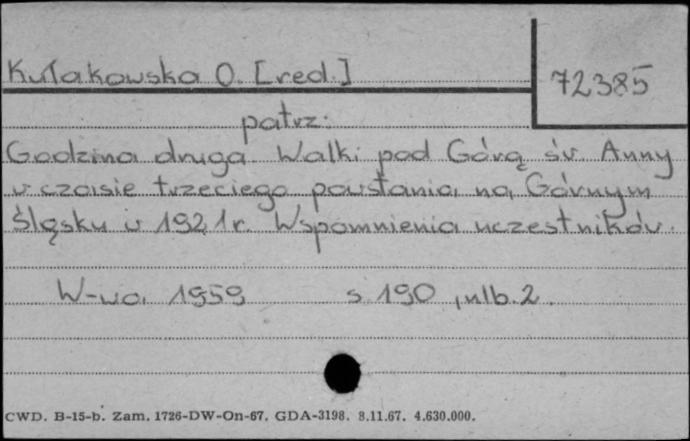 Kułakowska O. [red.]
72385
patrz:
Godzina druga. Walki pod Górą św. Anny
w czasie trzeciego powstania na Górnym
Śląsku w 1921 r. Wspomnienia uczestników.
W-wa 1959 s 190, nlb. 2.
CWD. B-15-b. Zam. 1726-DW-On-67. GDA-3198. 8.11.67. 4.630.000.